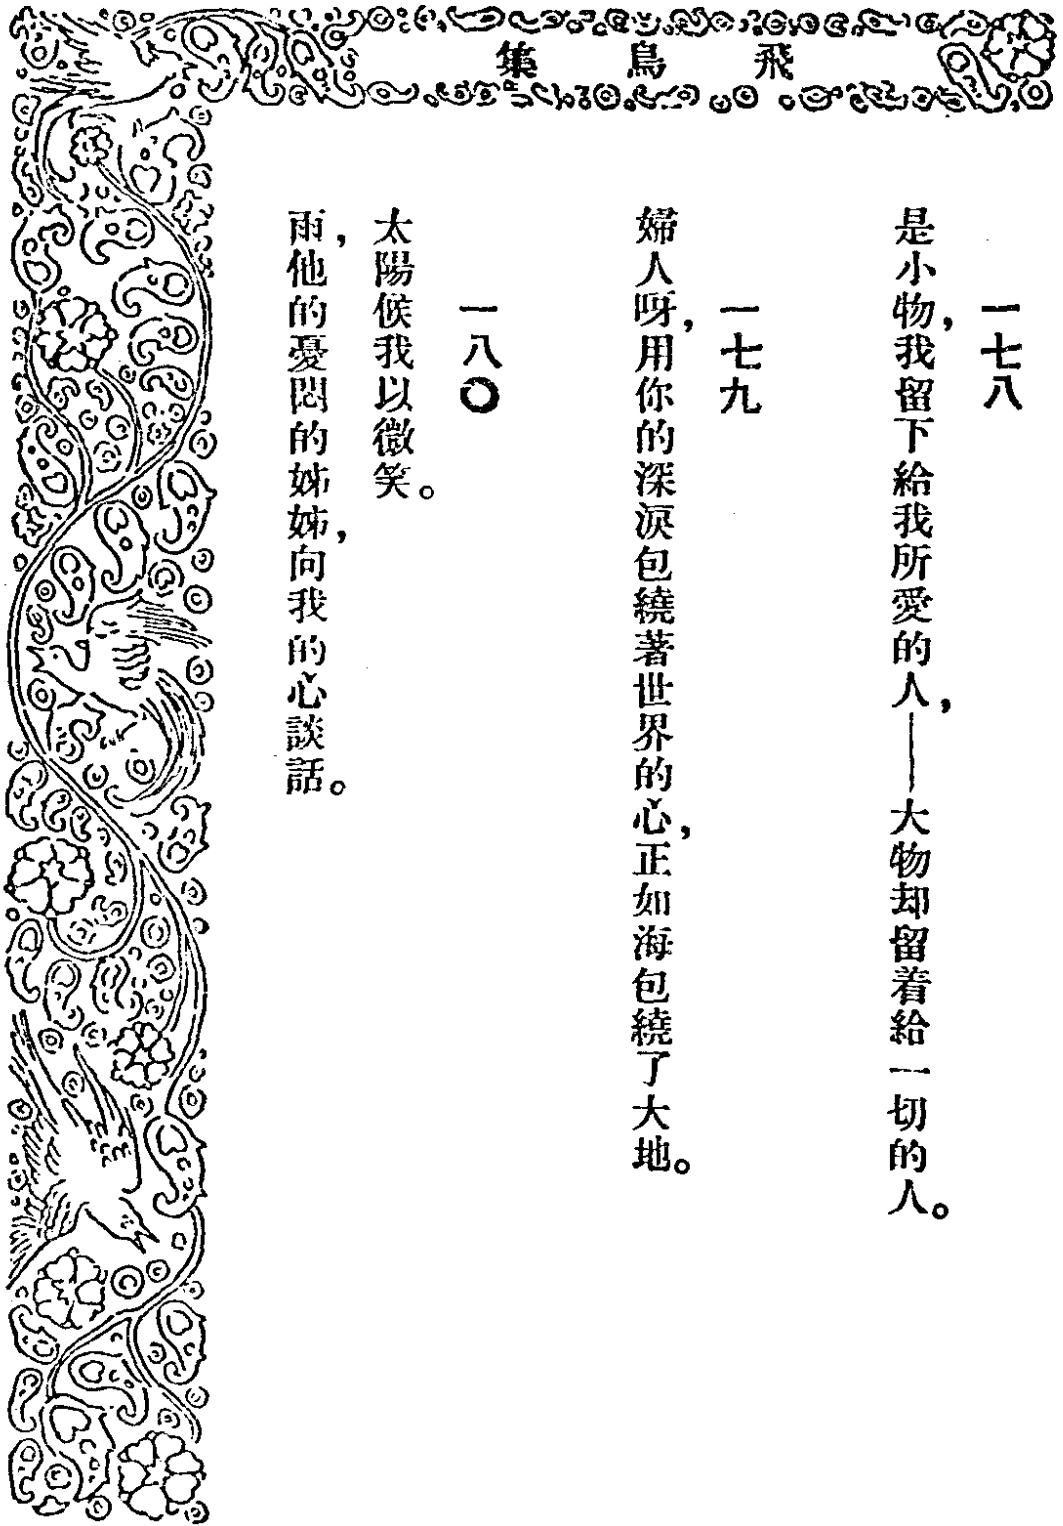 飛鳥集
一七八
是小物，我留下給我所愛的人，——大物却留着給一切的人。
一七九
婦人呀，用你的深淚包繞著世界的心，正如海包繞了大地。
一八〇
太陽候我以微笑。
雨，他的憂悶的姊姊，向我的心談話。